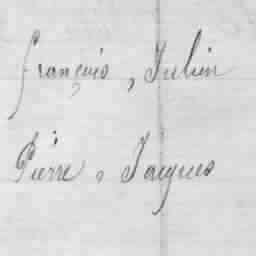 françois, Julien
Pierre, Jacques